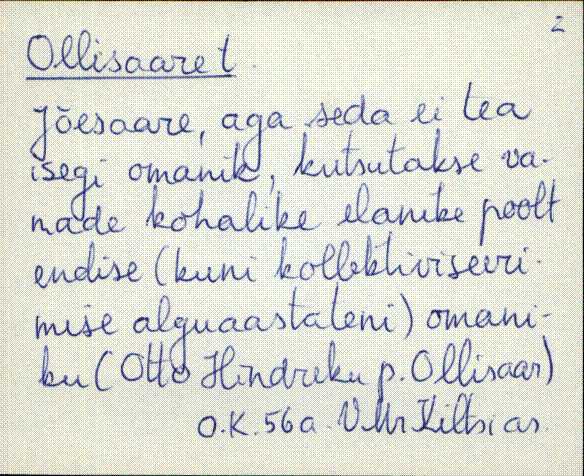 2
Ollisaaret.
Jõesaare, aga seda ei tea
isegi omanik, kutsutakse va-
nade kohalike elanike poolt
endise (kuni kollektiviseeri-
mise alguaastateni) omani-
ku (Otto Hindreku p. Ollisaar)
O.K. 56a. V.Mr Kiltsi as.